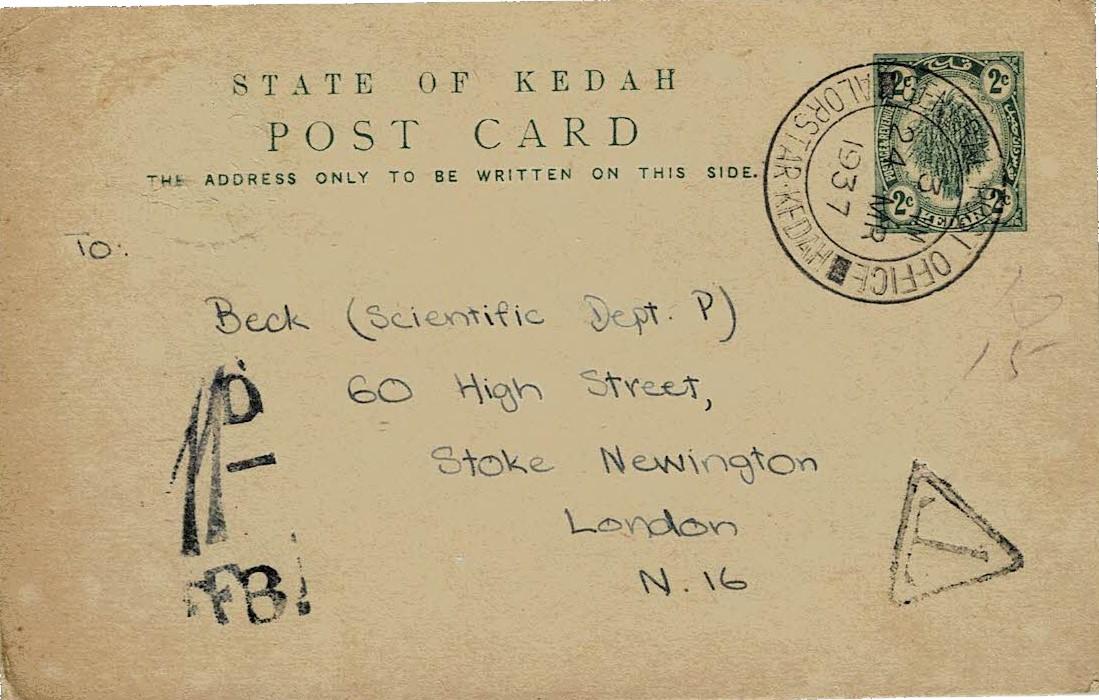 STATE OF KEDAH
POST CARD
THE ADDRESS ONLY TO BE WRITTEN ON THIS SIDE.
2c 2c
2c 2c
KEDAH
POST OFFICE
ALORSTAR·KEDAH
24 MR
1937
To:
Beck (Scientific Dept. P)
60 High Street,
Stoke Newington
London
N.16
15
1D
FB
T